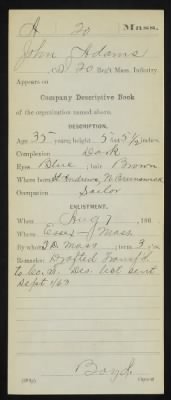 A 20 Mass.
John Adams
20 Reg't Mass. Infantry.
Appears on
Company Descriptive Book
of the organization named above.
DESCRIPTION.
Age 35 years; height 5 feet 5 1/2 inches.
Complexion Dark
Eyes Blue; hair Brown
Where born St Andrews, N. Brunswick
Occupation Sailor
ENLISTMENT.
When Aug 7, 186
Where Essex Mass.
By whom 3D. Mass; term 3 y'rs.
Remarks: Drafted Transf'd
to Co. Des. list sent
Sept 1/63
Boyd